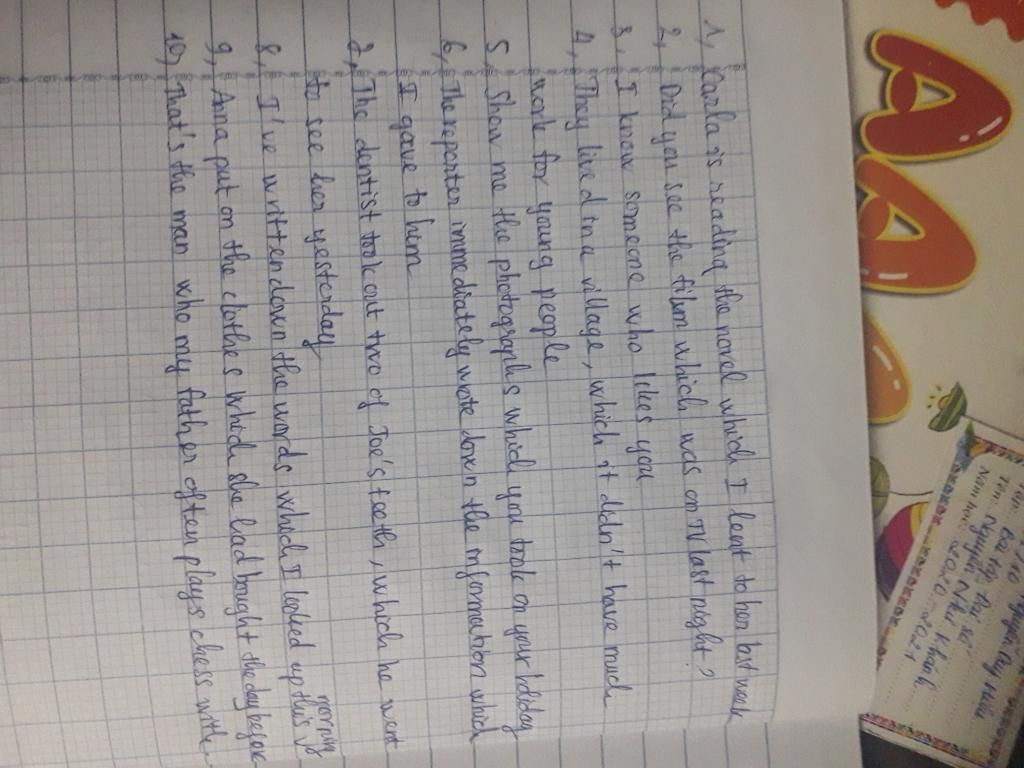 1, Carla is reading the novel which I leant to her last week
2, Did you see the film which was on TV last night?
3, I know someone who likes you
4, They lived in a village, which it didn't have much
work for young people
5, Show me the photographs which you took on your holiday
6, The reporter immediately wrote down the information which
I gave to him
7, The dentist took out two of Joe's teeth, which he went
to see her yesterday
8, I've written down the words which I looked up this morning
9, Ana put on the clothes which she had bought the day before
10, That's the man who my father often plays chess with
Nguyễn Như Khánh
2020 - 2021